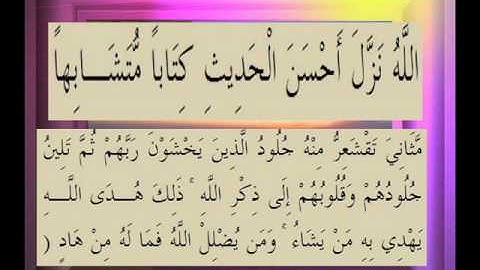 اللَّهُ نَزَّلَ أَحْسَنَ الْحَدِيثِ كِتَاباً مُّتَشَـــابِهاً
مَّثَانِيَ تَقْشَعِرُّ مِنْهُ جُلُودُ الَّذِينَ يَخْشَوْنَ رَبَّهُمْ ثُمَّ تَلِينُ
جُلُودُهُمْ وَقُلُوبُهُمْ إِلَى ذِكْرِ اللَّهِ ۚ ذَلِكَ هُـــدَى اللَّـــهِ
يَهْدِي بِهِ مَنْ يَشَاءُ ۚ وَمَن يُضْلِلْ اللَّهُ فَمَا لَهُ مِنْ هَادٍ (